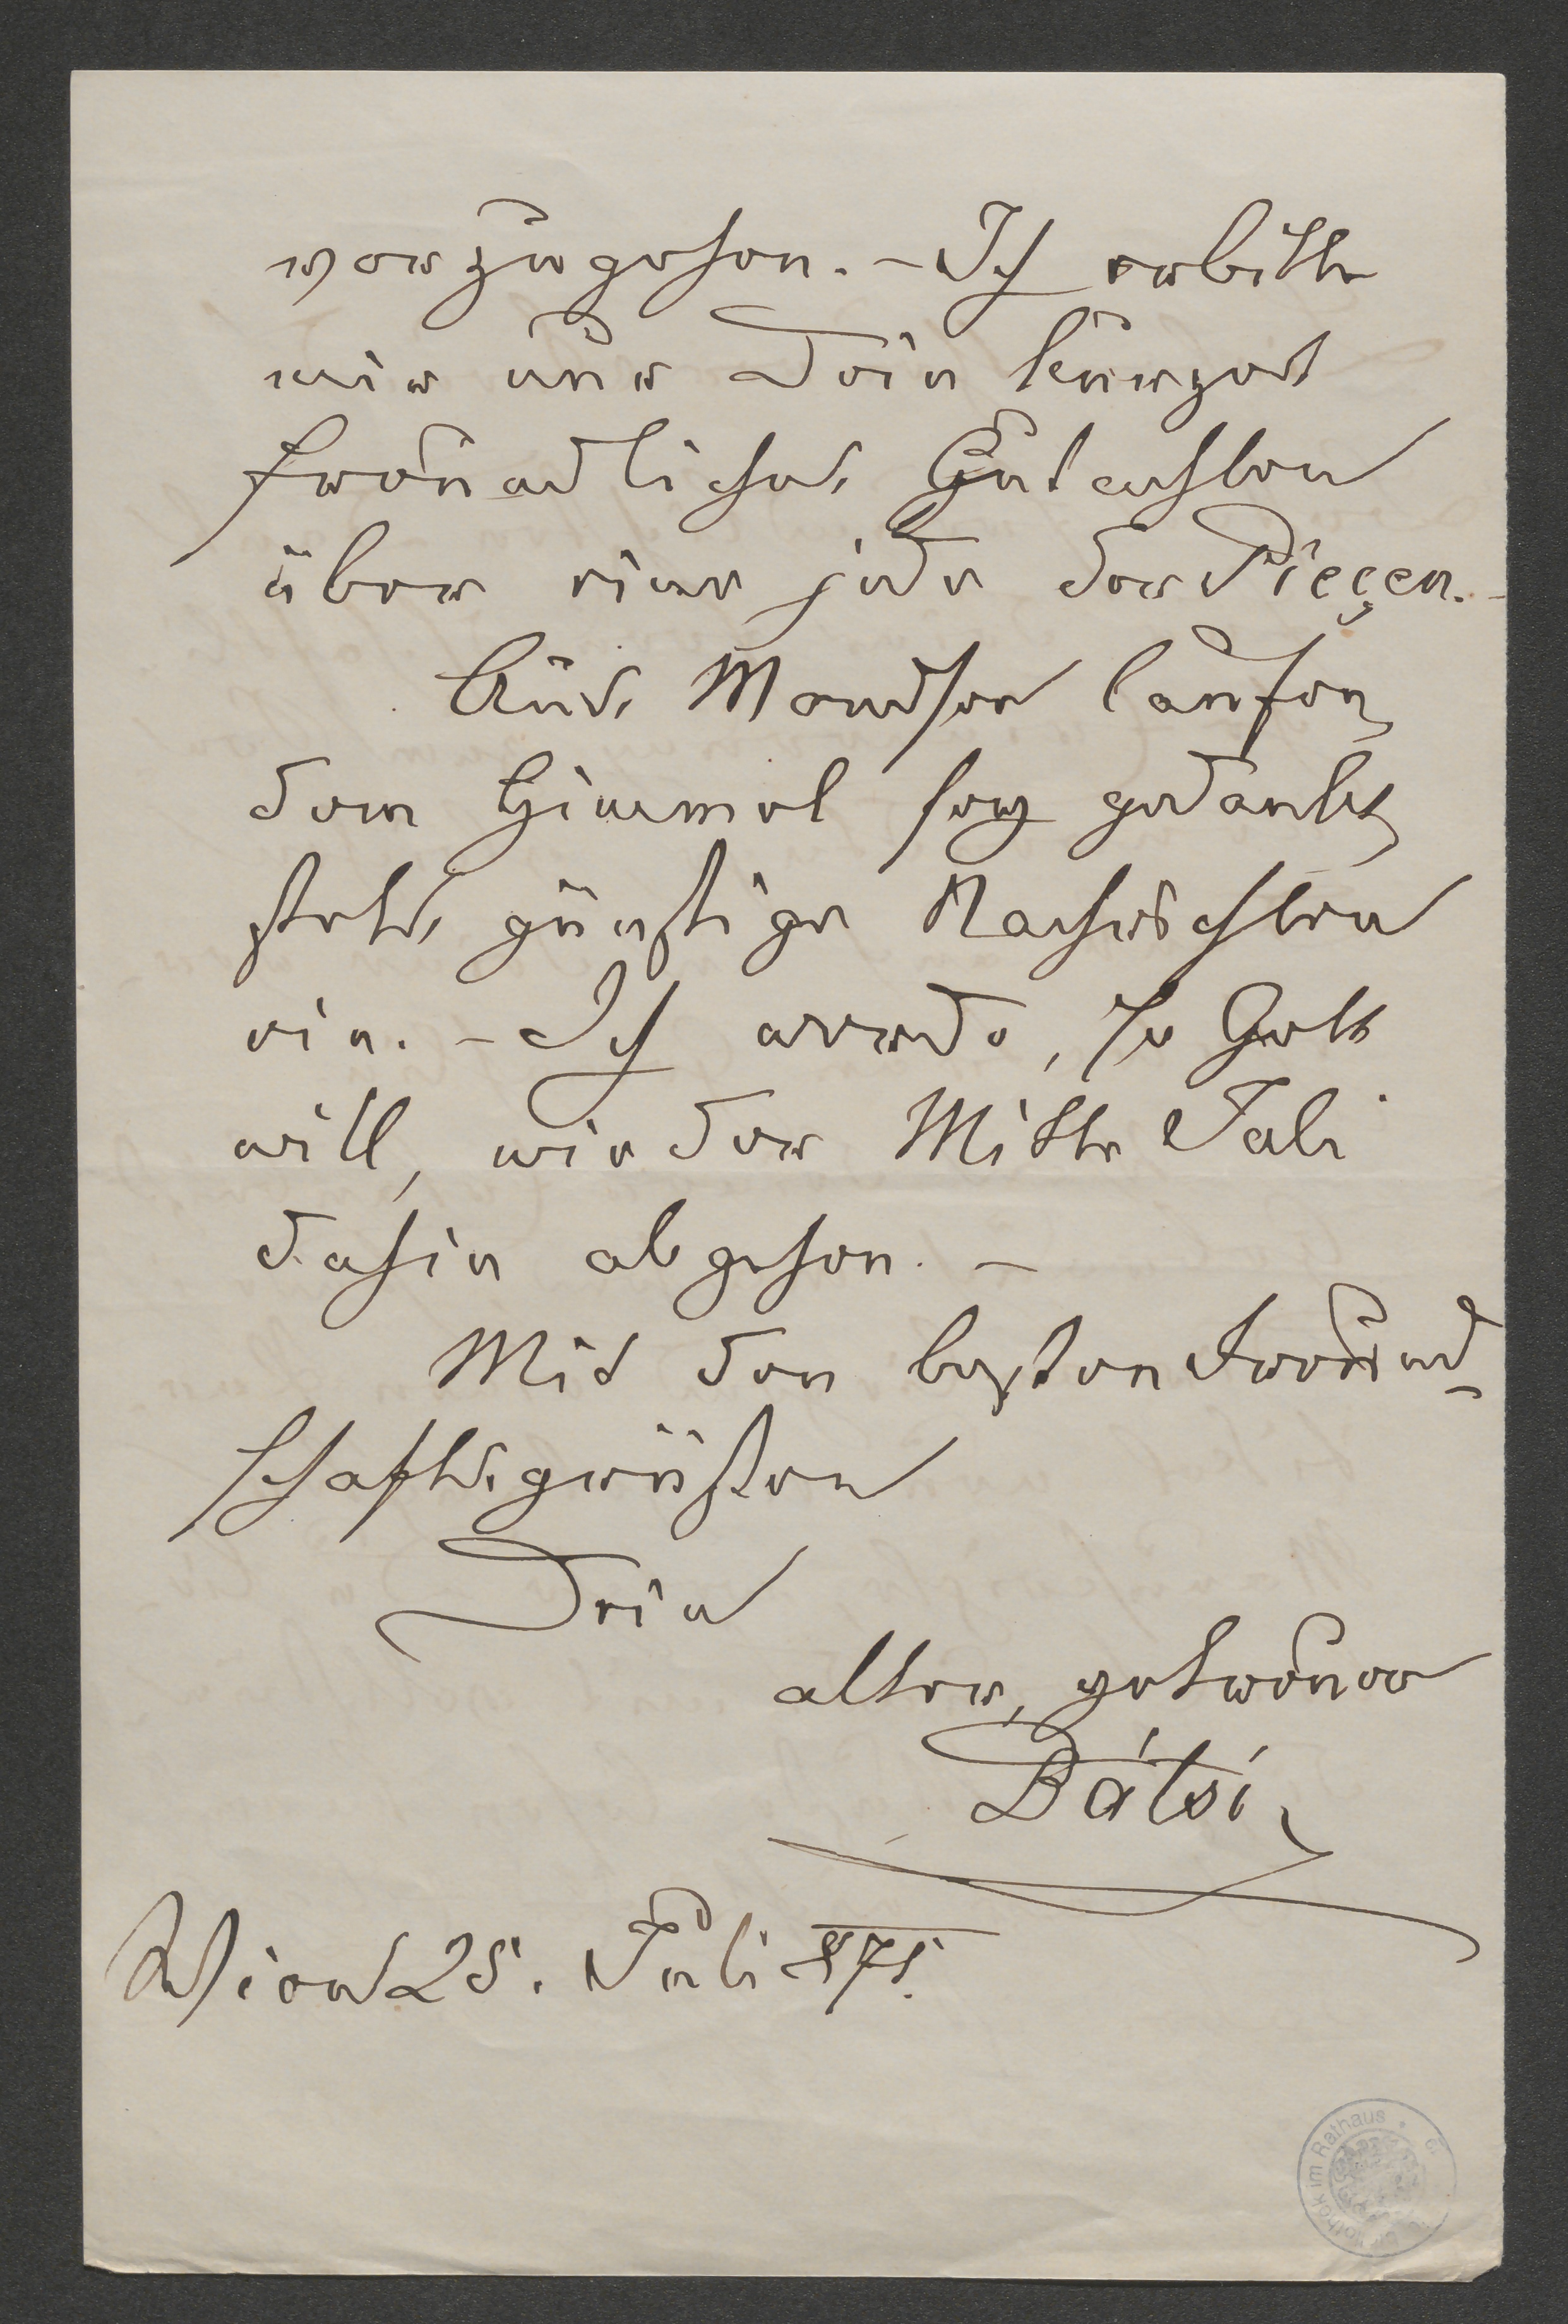 vorzugehen. – Ich erbitte
mir nur Dein kurzes
freundliches Gutachten
über eine jede der Pieçen. –
Aus Mondsee laufen,
dem Himmel sey gedankt,
stets günstige Nachrichten
ein. – Ich werde, so Gott
will, wieder Mitte Juli
dahin abgehen. –
Mit den besten Freund-
schaftsgrüßen
Dein
alter, getreuer
Bátsi
Wien 25. Juli 871.
im Rathaus